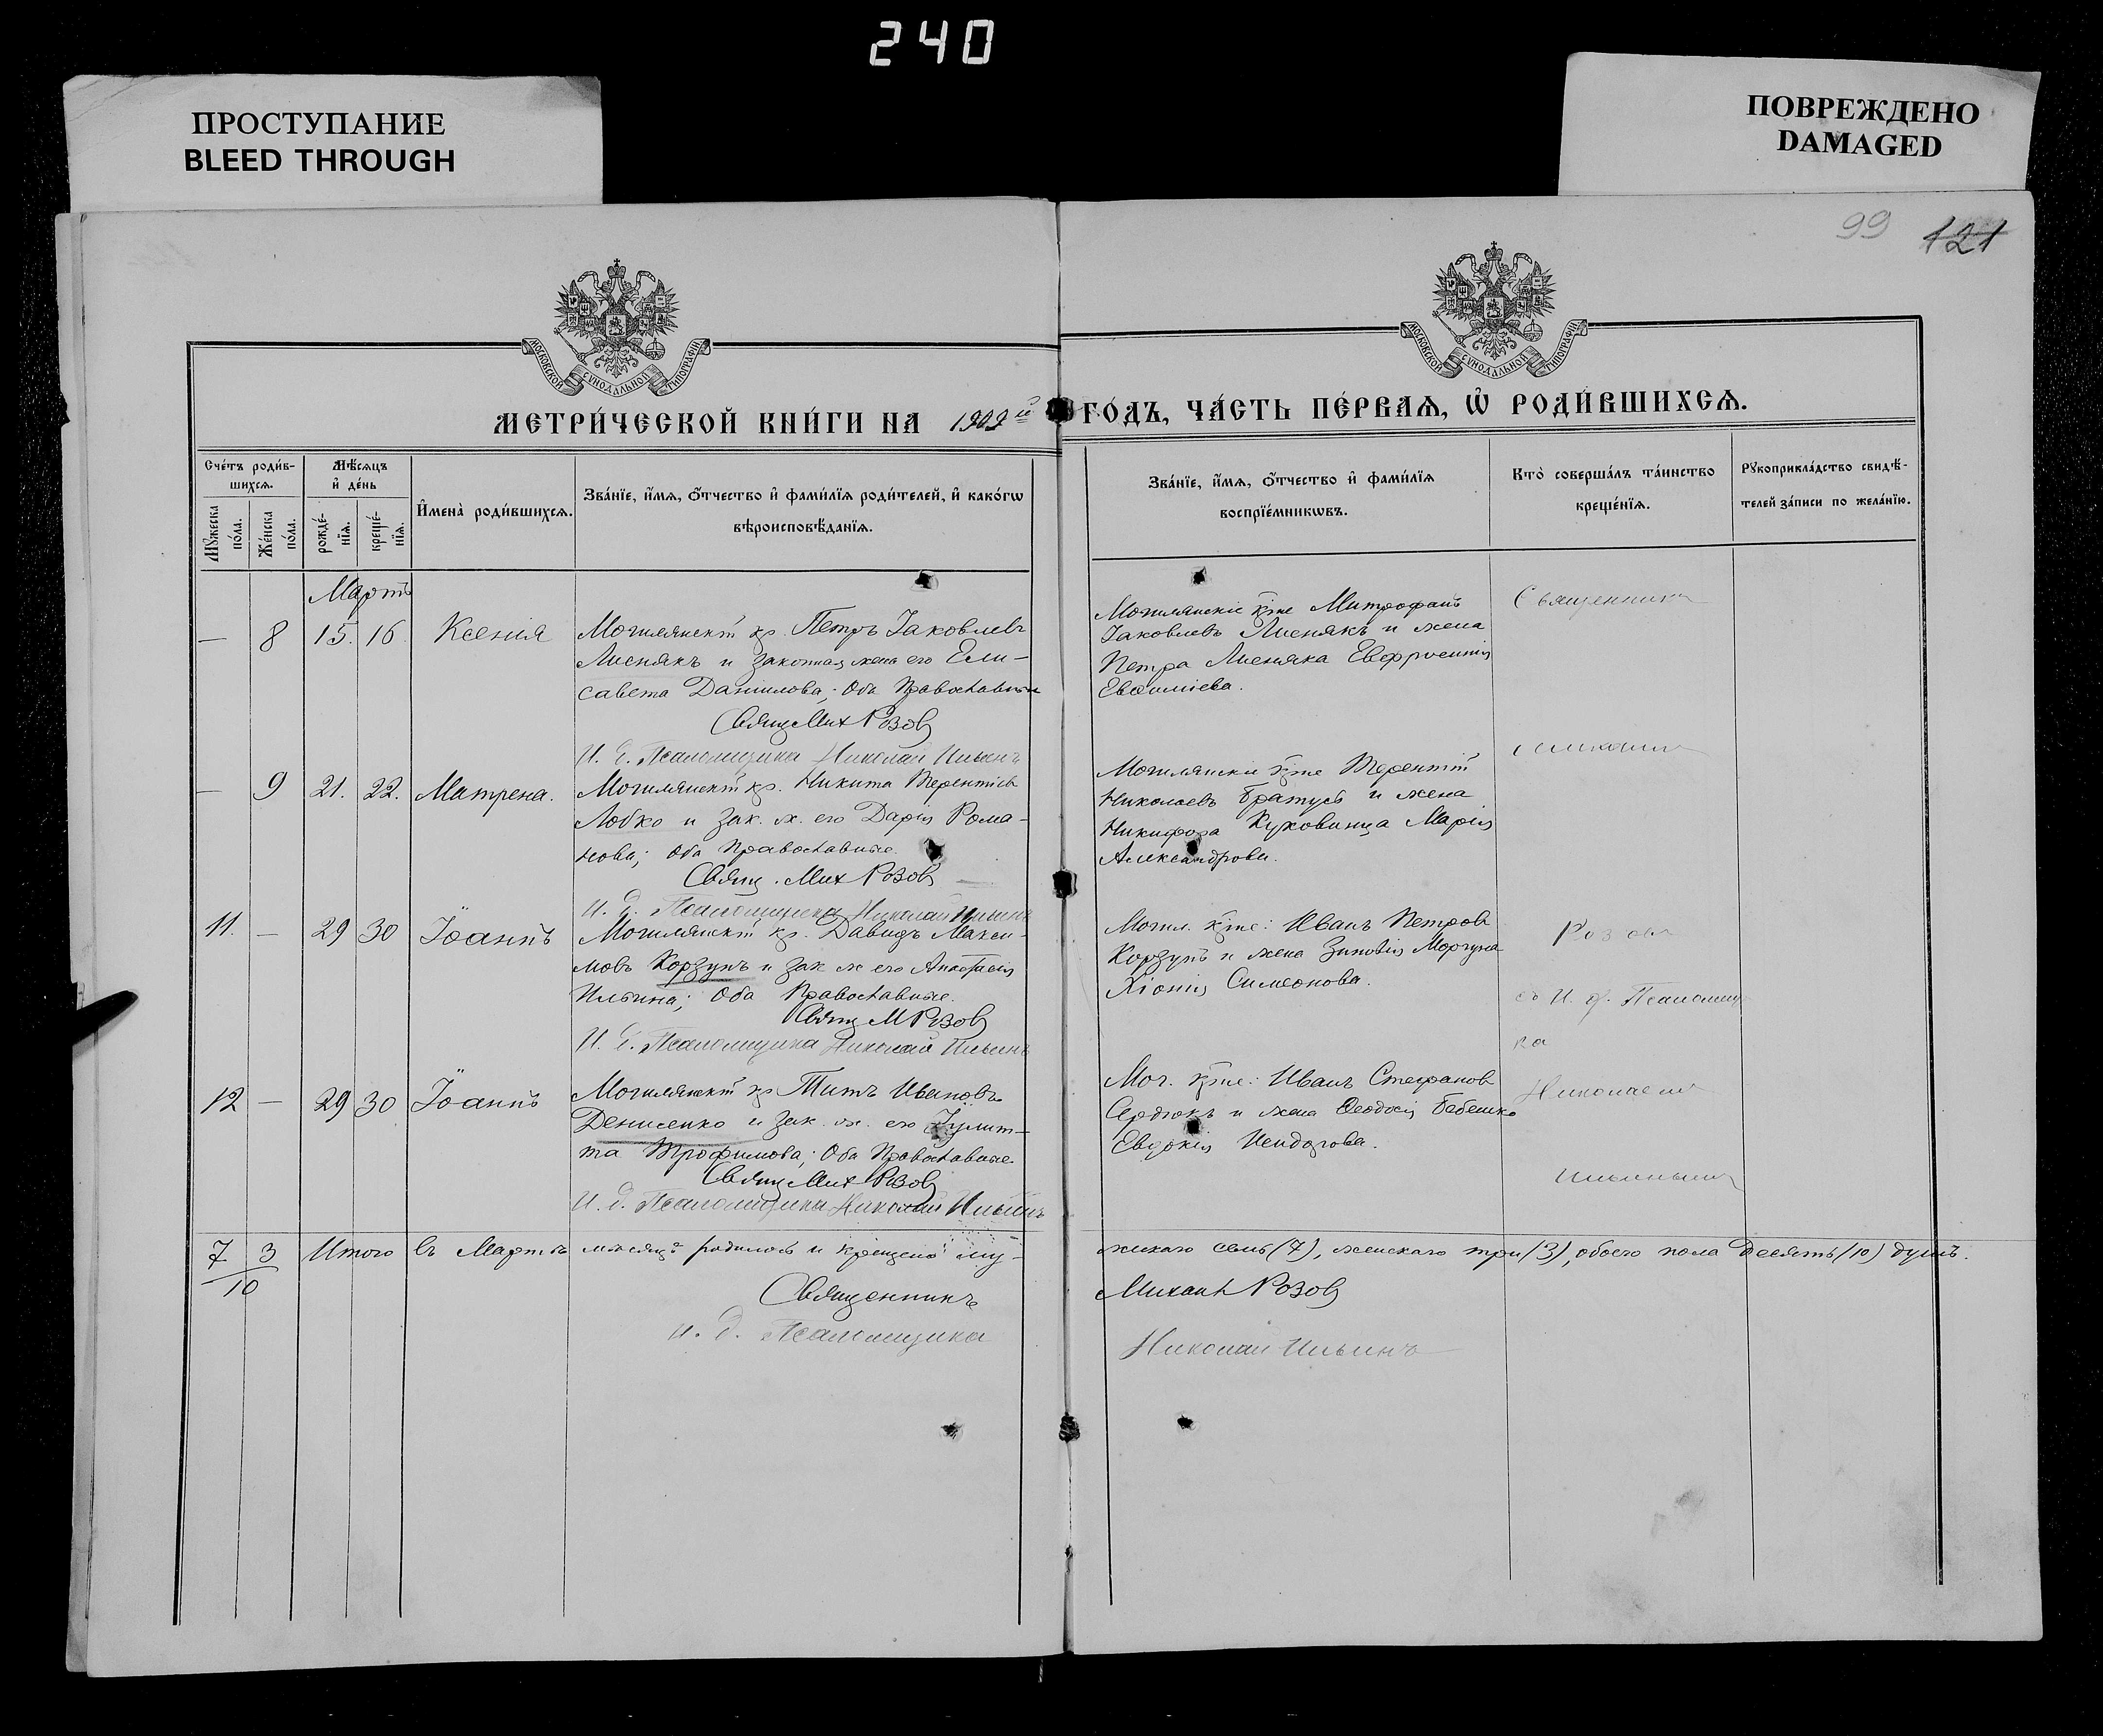 240
ПРОСТУПАНИЕ
BLEED THROUGH
ПОВРЕЖДЕНО
DAMAGED
99 121
МОСКОВСКОЙ СУНОДАЛЬНОЙ ТИПОГРАФІИ
МОСКОВСКОЙ СУНОДАЛЬНОЙ ТИПОГРАФІИ
МЕТРИ́ЧЕСКОЙ КНИ́ГИ НА 190 й ГО́ДЪ, ЧА́СТЬ ПЕ́РВАѦ, Ѡ РОДИ́ВШИХСѦ.
Сче́тъ роди́в-
шихсѧ.
Мѣ́сѧцъ
и҆ де́нь
Мꙋжеска по́ла.
Же́нска по́ла.
рожде́-
нїѧ.
креще́-
нїѧ.
И҆мена̀ роди́вшихсѧ.
Зва́нїе, и҆́мѧ, ѻ҆́тчество и҆ фами́лїѧ роди́телей, и҆ како́гѡ
вѣроисповѣ́данїѧ.
Зва́нїе, и҆́мѧ, ѻ҆́тчество и҆ фами́лїѧ
воспрїе́мникѡвъ.
Кто̀ соверша́лъ та́инство
креще́нїѧ.
Рꙋкоприкла́дство свидѣ́-
телей за́писи по жела́нїю.
Мартъ
— 8 15. 16. Ксенія
Могилянскій кр. Петръ Іаковлевъ
Лиснякъ и законная жена его Ели-
савета Даніилова; Оба Православные
Свящ Мих Розов
И. д. Псаломщика Николай Ильинъ
Могилянскіе кр-не Митрофанъ
Іаковлевъ Лиснякъ и жена
Петра Лисняка Евфросинія
Евѳиміева.
Священникъ
— 9 21. 22. Матрена.
Могилянскій кр. Никита Терентіев
Лобко и зак. ж. его Дарія Рома-
нова; Оба Православные.
Свящ. Мих Розов
И. д. Псаломщика Николай Ильинъ
Могилянскіе кр-не Терентій
Николаевъ Братусь и жена
Никифора Куковинца Марія
Александрова.
11. — 29 30 Іоаннъ
Могилянскій кр. Давидъ Макси-
мовъ Корзунъ и зак ж его Анастасія
Ильина; Оба Православные.
Свящ М Розов
И. д. Псаломщика Николай Ильинъ
Могил. кр-не: Иванъ Петров
Корзунъ и жена Зиновія Моргуна
Хіонія Симеонова.
съ И. д. Псаломщи
ка
12 — 29 30 Іоаннъ
Могилянскій кр Титъ Ивановъ
Денисенко и зак. ж. его Іулит-
та Трофимова; Оба Православные.
Свящ Мих Розов
И. д. Псаломщика Николай Ильинъ
Мог. кр-не: Иванъ Стефанов
Сердюкъ и жена Ѳеодосія Бебешко
Евдокія Исидорова.
Николаемъ
Ильинымъ
7 3 Итого въ Мартѣ мѣсяцѣ родилось и крещено му-
жскаго семь (7), женскаго три (3), обоего пола десять (10) душъ.
10
Священникъ Михаил Розов
И. д. Псаломщика Николай Ильинъ